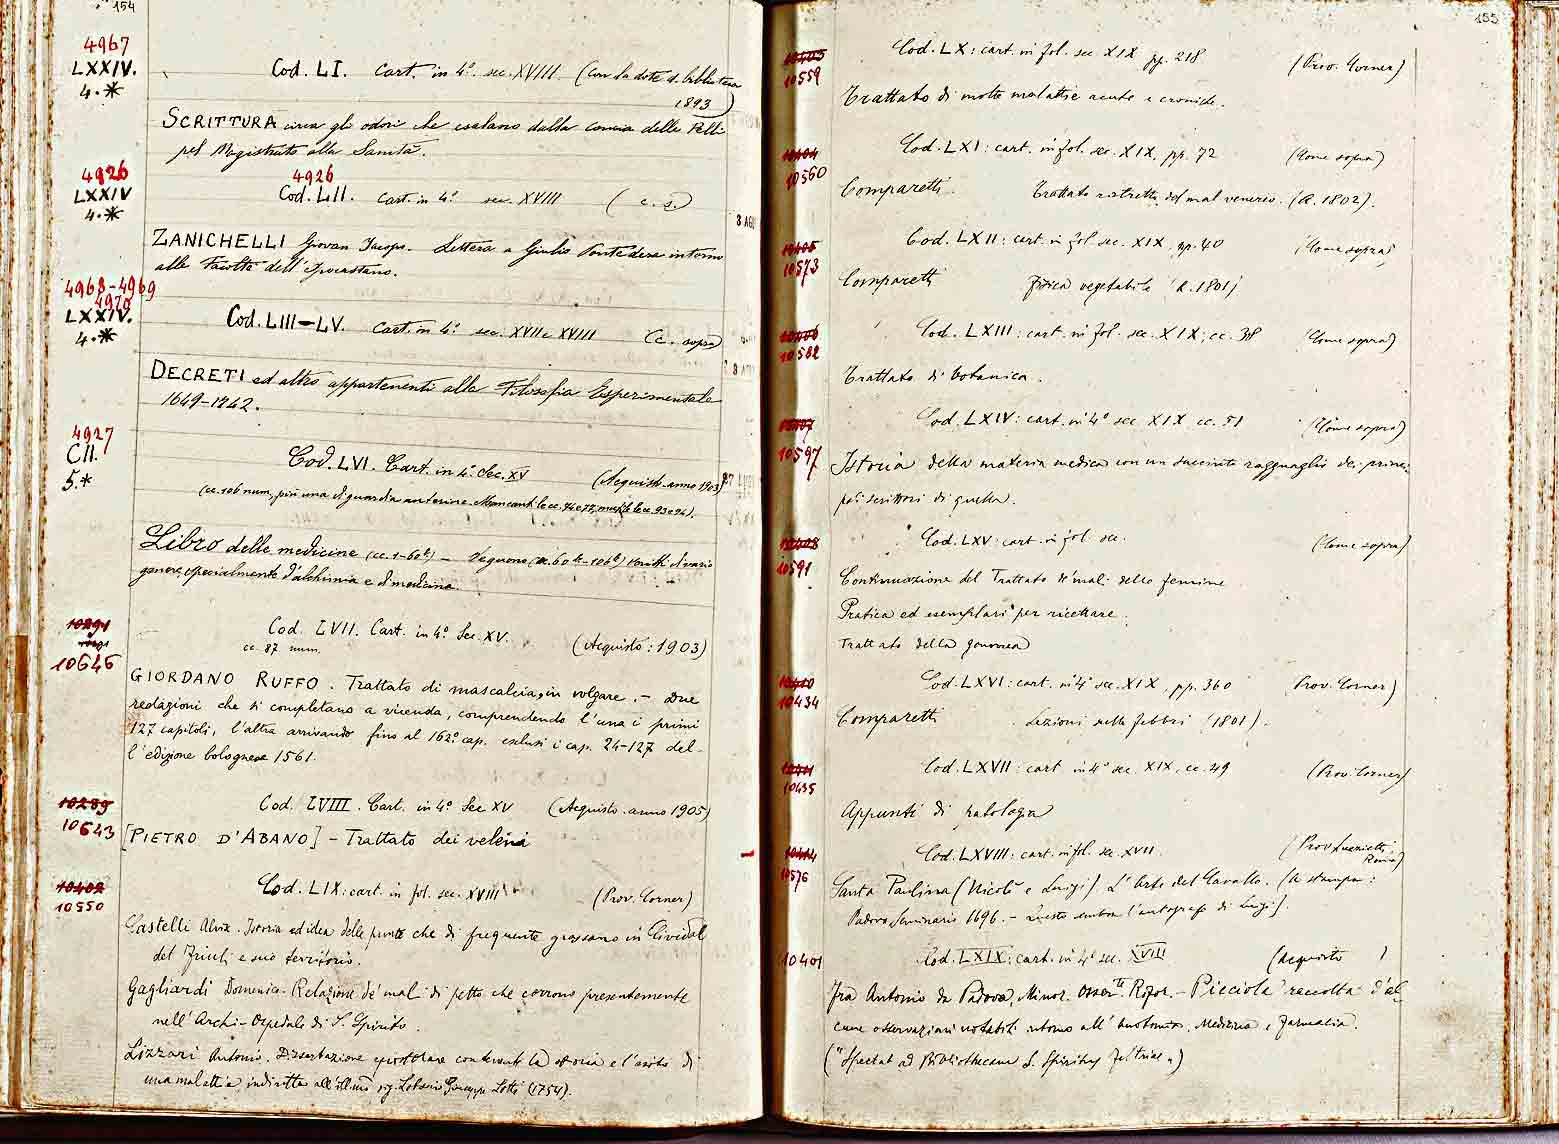 154
4967
LXXIV.
4.*
Cod. LI. Cart. in 4º. sec. XVIII (Con la dote d. biblioteca
1893)
SCRITTURA circa gli odori che esalano dalla concia delle Pelli
pel Magistrato alla Sanità.
4926
LXXIV
4.*
4926
Cod. LII. Cart. in 4º. sec. XVIII ( c. s.)
ZANICHELLI Giovan Jacopo. Lettera a Giulio Pontedera intorno
alle Facoltà dell'Ipocastano.
4968-4969
4970
LXXIV.
4.*
Cod. LIII-LV. Cart. in 4º. sec. XVII e XVIII (c. sopra)
DECRETI ed altro appartenenti alla Filosofia Esperimentale
1649-1742.
4927
CII.
5.*
Cod. LVI. Cart. in 4º. Sec. XV (Acquisto anno 1903)
(cc. 106 num, più una di guardia anteriore. Mancanti le cc. 74 e 77, mutile le cc. 93 e 94).
Libro delle medicine (cc. 1-60t) - Seguono (cc. 60t-106t) scritti di vario
genere, specialmente d'alchimia e di medicina.
10291
10646
Cod. LVII. Cart. in 4º. Sec. XV.
cc. 87 num. (Acquisto: 1903)
GIORDANO RUFFO. Trattato di mascalcia, in volgare. - Due
redazioni che si completano a vicenda, comprendendo l'una i primi
127 capitoli, l'altra arrivando fino al 162º cap. esclusi i cap. 24-127 del-
l'edizione bolognese 1561.
10289
10643
Cod. LVIII. Cart. in 4º. Sec XV (Acquisto. anno 1905)
[PIETRO D'ABANO] - Trattato dei veleni
10402
10550
Cod. LIX: cart. in fol. sec. XVIII (Prov. Corner)
Castelli Alvise. Istoria ed idea delle punte che di frequente grassano in Cividal
del Friuli e suo territorio.
Gagliardi Domenico. Relazione de' mali di petto che corrono presentemente
nell'Archi-Ospedale di S. Spirito.
Lizzari Antonio. Dissertazione epistolare contenente la storia e l'esito di
una malattia, indiritta all'ill.mo sig. Giuseppe Lotti (1754).
155
10403
10559
Cod. LX: cart. in fol. sec. XIX pp. 218 (Prov. Corner)
Trattato di molte malattie acute e croniche.
10404
10560
Cod. LXI: cart. in fol. sec. XIX, pp. 72 (Come sopra)
Comparetti. Trattato ristretto del mal venereo. (A. 1802).
10405
10573
Cod. LXII: cart. in fol. sec. XIX, pp. 40 (Come sopra)
Comparetti Fisica vegetabile (A. 1801)
10406
10582
Cod. LXIII: cart. in fol. sec. XIX, cc. 38 (Come sopra)
Trattato di botanica.
10407
10597
Cod. LXIV: cart. in 4º sec XIX cc. 51 (Come sopra)
Istoria della materia medica con un succinto ragguaglio dei princi-
pali scrittori di quella.
10408
10591
Cod. LXV: cart. in fol. sec. (Come sopra)
Continuazione del Trattato de' mali delle femmine
Pratica ed esemplari per ricettare.
Trattato della gonorrea
10410
10434
Cod. LXVI: cart. in 4º sec. XIX, pp. 360 (Prov. Corner)
Comparetti Lezioni sulle febbri (1801).
10411
10435
Cod. LXVII: cart in 4º sec. XIX, cc. 49 (Prov. Corner)
Appunti di patologia
10414
10576
Cod. LXVIII: cart. in fol. sec. XVII. (Prov. Luzzietti,
Roma)
Santa Paulina (Nicolò e Luigi). L'Arte del Cavallo. (A stampa:
Padova, Seminario 1696. - Questo sembra l'autografo di Luigi).
10401
Cod. LXIX: cart. in 4º sec. XVIII (Acquisto )
Fra Antonio da Padova, Minor. Osser.te Rifor. - Picciola raccolta d'al-
cune osservazioni notabili intorno all'Anatomia, Medicina e Farmacia.
("Spectat ad Bibliothecam S. Spiritus Feltriae")